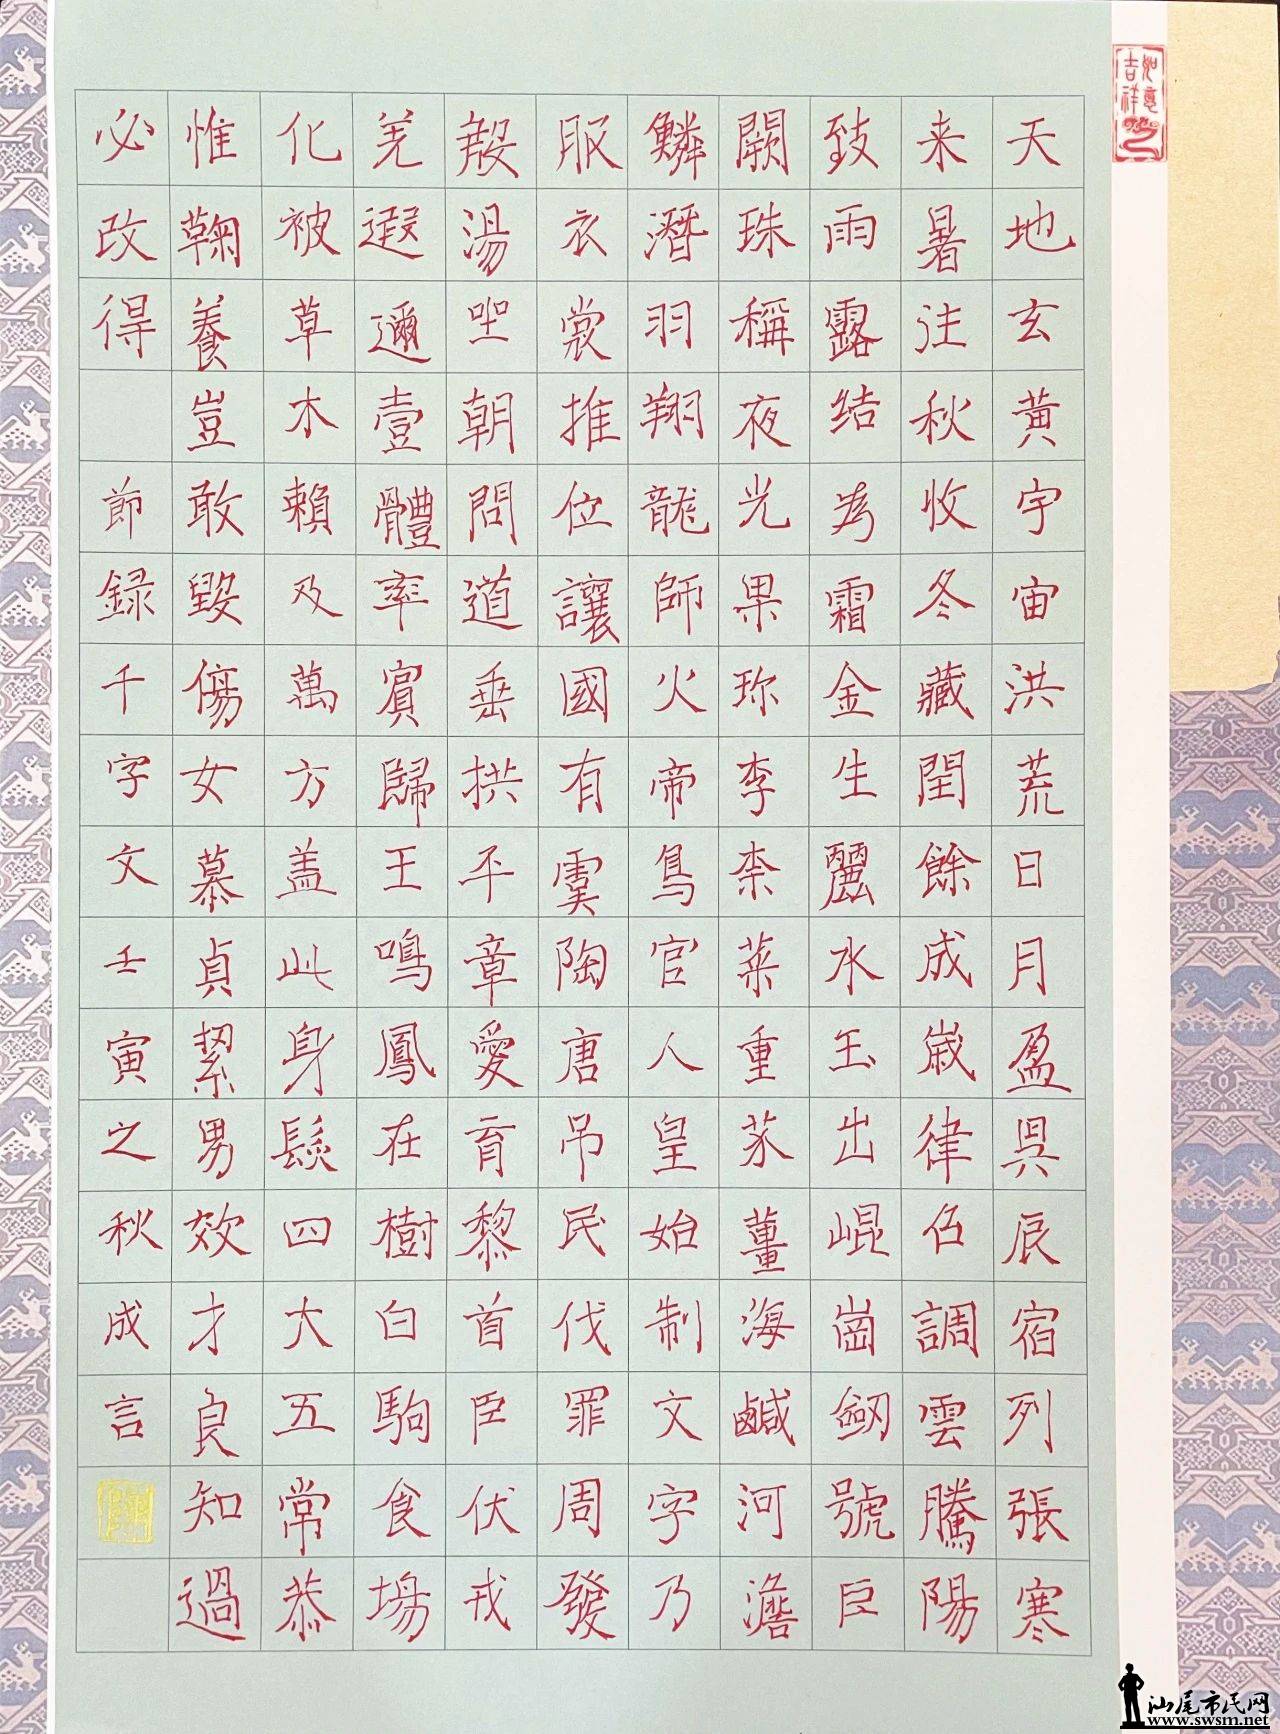 如意吉祥
天地玄黃宇宙洪荒日月盈昃辰宿列張寒
来暑往秋收冬藏閏餘成歲律召調雲騰陽
致雨露结為霜金生麗水玉出崐崗劒號巨
闕珠稱夜光果珎李柰菜重芥薑海鹹河澹
鱗潛羽翔龍師火帝鳥官人皇始制文字乃
服衣裳推位讓國有虞陶唐吊民伐罪周發
殷湯坐朝問道垂拱平章愛育黎首臣伏戎
羌遐邇壹體率賓歸王鳴鳳在樹白駒食場
化被草木賴及萬方盖此身髮四大五常恭
惟鞠養豈敢毀傷女慕貞絜男效才良知過
必改得 節録千字文壬寅之秋成言
汕尾市民网
www.swsm.net